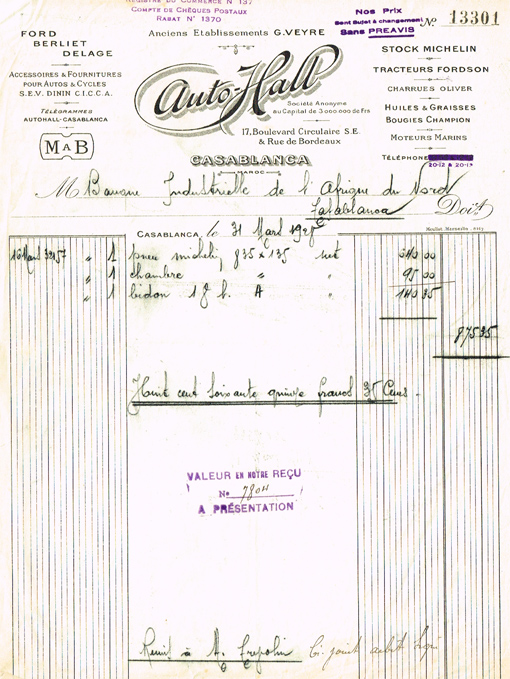 REGISTRE DU COMMERCE N° 137
COMPTE DE CHÈQUES POSTAUX
RABAT N° 1370
Nos Prix
Sont Sujet à changement
Sans PREAVIS
N° 13301
Anciens Etablissements G.VEYRE
FORD
BERLIET
DELAGE
ACCESSOIRES & FOURNITURES
POUR AUTOS & CYCLES
S.E.V. DININ C.I.C.C.A.
TÉLÉGRAMMES
AUTOHALL-CASABLANCA
M A B
Auto-Hall
Société Anonyme
au Capital de 3.000.000 de Frs
17, Boulevard Circulaire S.E.
& Rue de Bordeaux
CASABLANCA
MAROC
STOCK MICHELIN
TRACTEURS FORDSON
CHARRUES OLIVER
HUILES & GRAISSES
BOUGIES CHAMPION
MOTEURS MARINS
TÉLÉPHONE
20-12 & 20-13
M Banque Industrielle de l'Afrique du Nord
Casablanca Doit
Moullot, Marseille
CASABLANCA, le 31 1928
16 Mars 32157 " 1 pneu michelin 835 x 135 net 640 00
" 1 chambre " " 95 00
" 1 bidon A " 140 35
875 35
Huit cent soixante quinze francs 35 Cmes
VALEUR EN NOTRE REÇU
N° 7804
A PRÉSENTATION
Remis à M.
Ci-joint